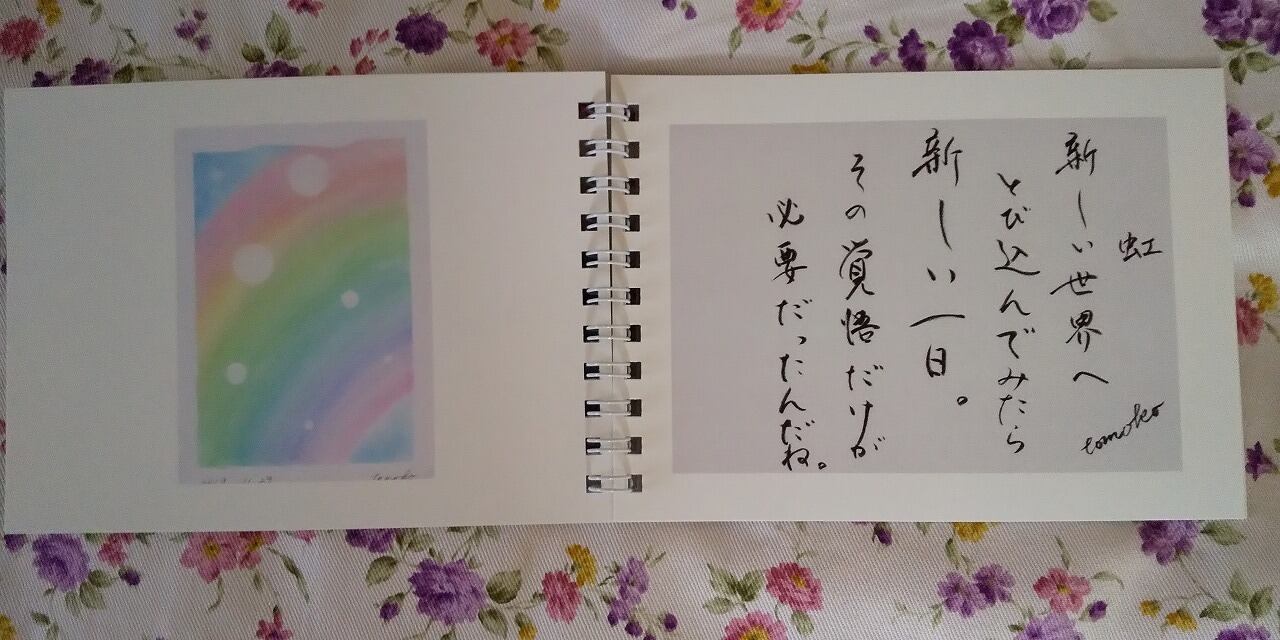 虹
tomoko
新しい世界へ
とび込んでみたら
新しい一日。
その覚悟だけが
必要だったんだね。
tomoko